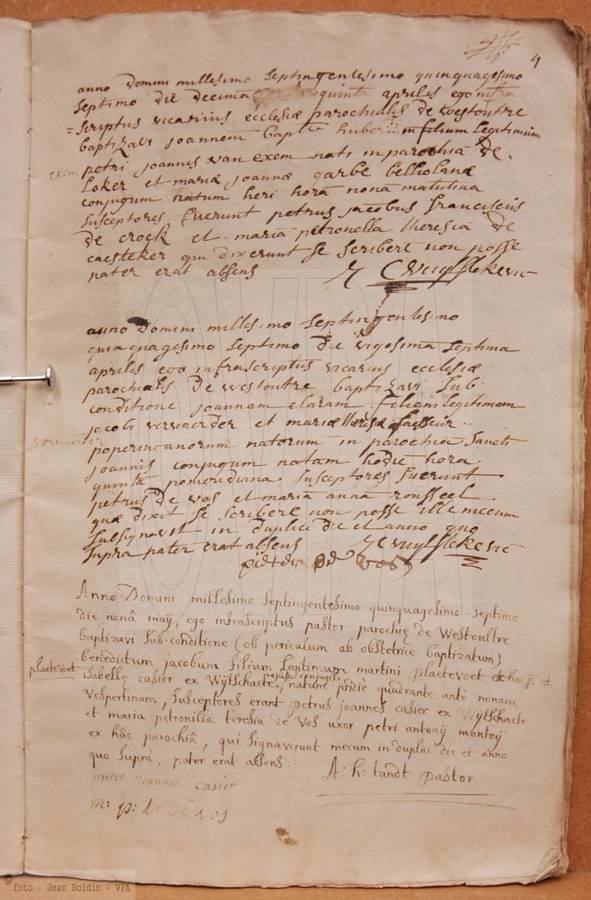 4
anno Domini millesimo Septingentesimo quinquagesimo
Septimo die decima quinta aprilis ego infra
=scriptus vicarius ecclesiæ parochialis de westoutre
baptizavi joannem Bapt filium legitimum
exem petri joannis van exem nati in parochiâ de
Loker et mariæ joannæ garbe belliolanæ
conjugum natum heri horâ nonâ matutina
Susceptores fuerunt petrus jacobus franciscus
de crock et maria petronella theresia de
caesteker qui dixerunt se scribere non posse
pater erat absens
anno Domini millesimo Septingentesimo
quinquagesimo Septimo die vigesima Septima
aprilis ego infrascriptus vicarius ecclesiæ
parochialis de westoutre baptizavi Sub
conditione joannam claram filiam legitimam
jacobi vervaerder et mariæ theresiæ
poperincanorum natorum in parochia Sancti
joannis conjugum natam hodie hora
quinta pomeridiana Susceptores fuerunt
petrus De vos et maria anna rousseel
quæ dixit se scribere non posse ille mecum
Subsignavit in duplici die et anno quo
Supra pater erat absens
Anno Domini millesimo Septingentesimo quinquagesimo-Septimo
die nonâ maÿ, ego infrascriptus pastor parochiæ de Westoultre
baptizavi Sub-conditione (ob periculum ab obstetrice baptizatum)
benedictum jacobum filium martini plaetevoet et
plaetevoet isabellæ casier ex Wÿtschaete, conjugum, pridie quadrante ante nonam
Vespertinam, Susceptores erant petrus joannes casier ex Wÿtschaete
et maria petronilla teresia de Vos uxor petri antonÿ montoÿ
ex hâc parochiâ, qui Signaverunt mecum in duplici die et anno
quo Supra, pater erat absens.
A: h: tandt pastor
pieter joannes casier
m: p: t: de vos
©foto - Jean Boidin - VPA